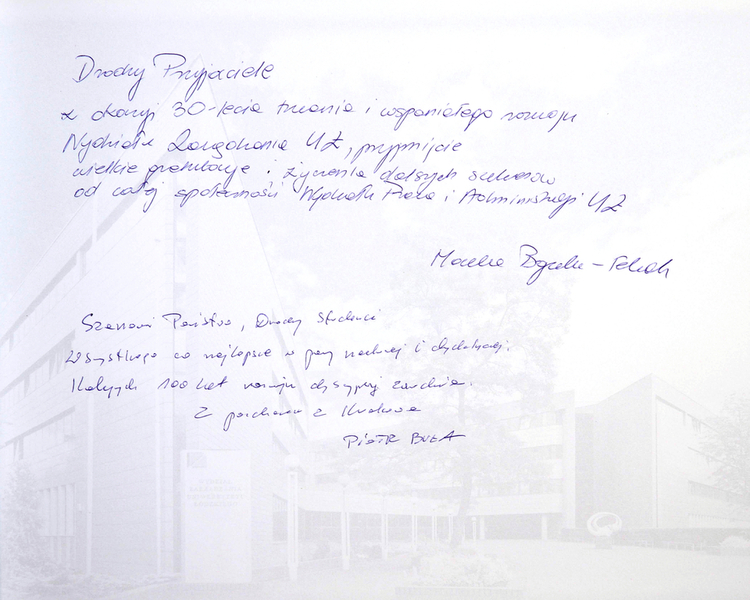 Drodzy Przyjaciele
z okazji 30-lecia trwania i wspaniałego rozwoju
Wydziału Zarządzania UŁ, przyjmijcie
wielkie gratulacje i życzenia dalszych sukcesów
od całej społeczności Wydziału Prawa i Administracji UŁ
Monika
Szanowni Państwo, Drodzy Studenci
Wszystkiego co najlepsze w pracy naukowej i dydaktycznej.
Kolejnych 100 lat rozwoju dyscypliny
Z Krakowa
PIOTR BUŁA
WYDZIAŁ
ZARZĄDZANIA